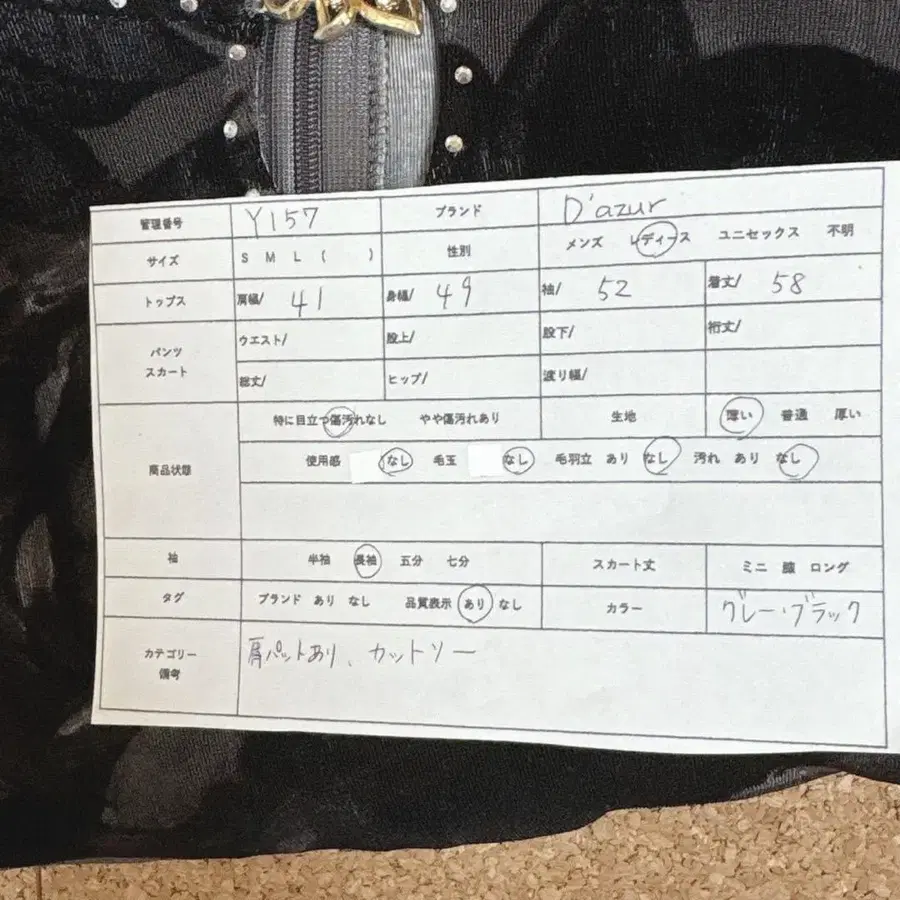 管理番号 Y157 ブランド D'azur
サイズ S M L ( ) 性別 メンズ レディース ユニセックス 不明
トップス 肩幅/ 41 身幅/ 49 袖/ 52 着丈/ 58
パンツ スカート ウエスト/ 股上/ 股下/ 裄丈/
総丈/ ヒップ/ 渡り幅/
商品状態 特に目立つ傷汚れなし やや傷汚れあり 生地 薄い 普通 厚い
使用感 なし 毛玉 なし 毛羽立 あり なし 汚れ あり なし
袖 半袖 長袖 五分 七分 スカート丈 ミニ 膝 ロング
タグ ブランド あり なし 品質表示 あり なし カラー グレー・ブラック
カテゴリー 備考 肩パットあり、カットソー